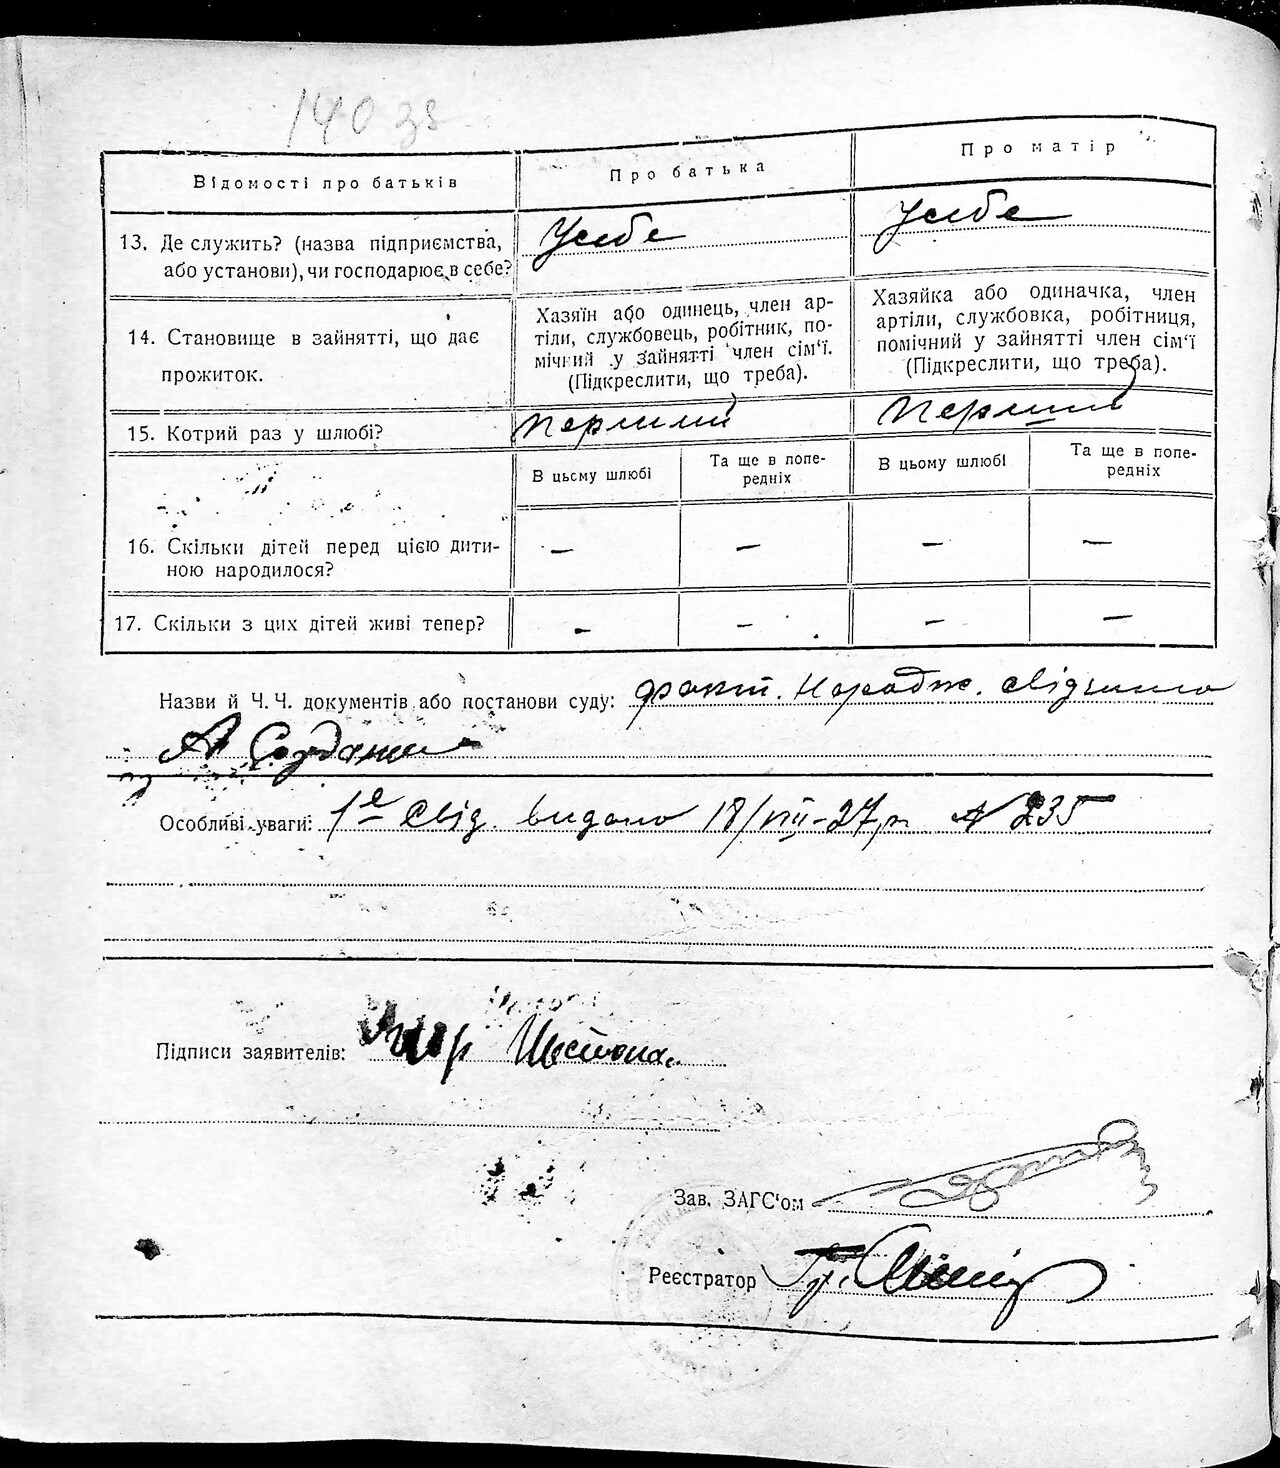 140 зв
Відомості про батьків
Про батька
Про матір
13. Де служить? (назва підприємства,
або установи), чи господарює в себе?
У себе
У себе
14. Становище в зайнятті, що дає
прожиток.
Хазяїн або одинець, член ар-
тіли, службовець, робітник, по-
мічний у зайнятті член сім'ї.
(Підкреслити, що треба).
Хазяйка або одиначка, член
артіли, службовка, робітниця,
помічний у зайнятті член сім'ї
(Підкреслити, що треба).
15. Котрий раз у шлюбі?
перший
перший
В цьому шлюбі
Та ще в попе-
редніх
В цьому шлюбі
Та ще в попе-
редніх
16. Скільки дітей перед цією дити-
ною народилося?
— — — —
17. Скільки з цих дітей живі тепер?
- - — —
Назви й Ч. Ч. документів або постанови суду: факт. Народж. свідчила
А
Особливі уваги: 1е свід. видано 18/VIII-27 р N 235
Підписи заявителів:
Зав. ЗАГС'ом
Реєстратор